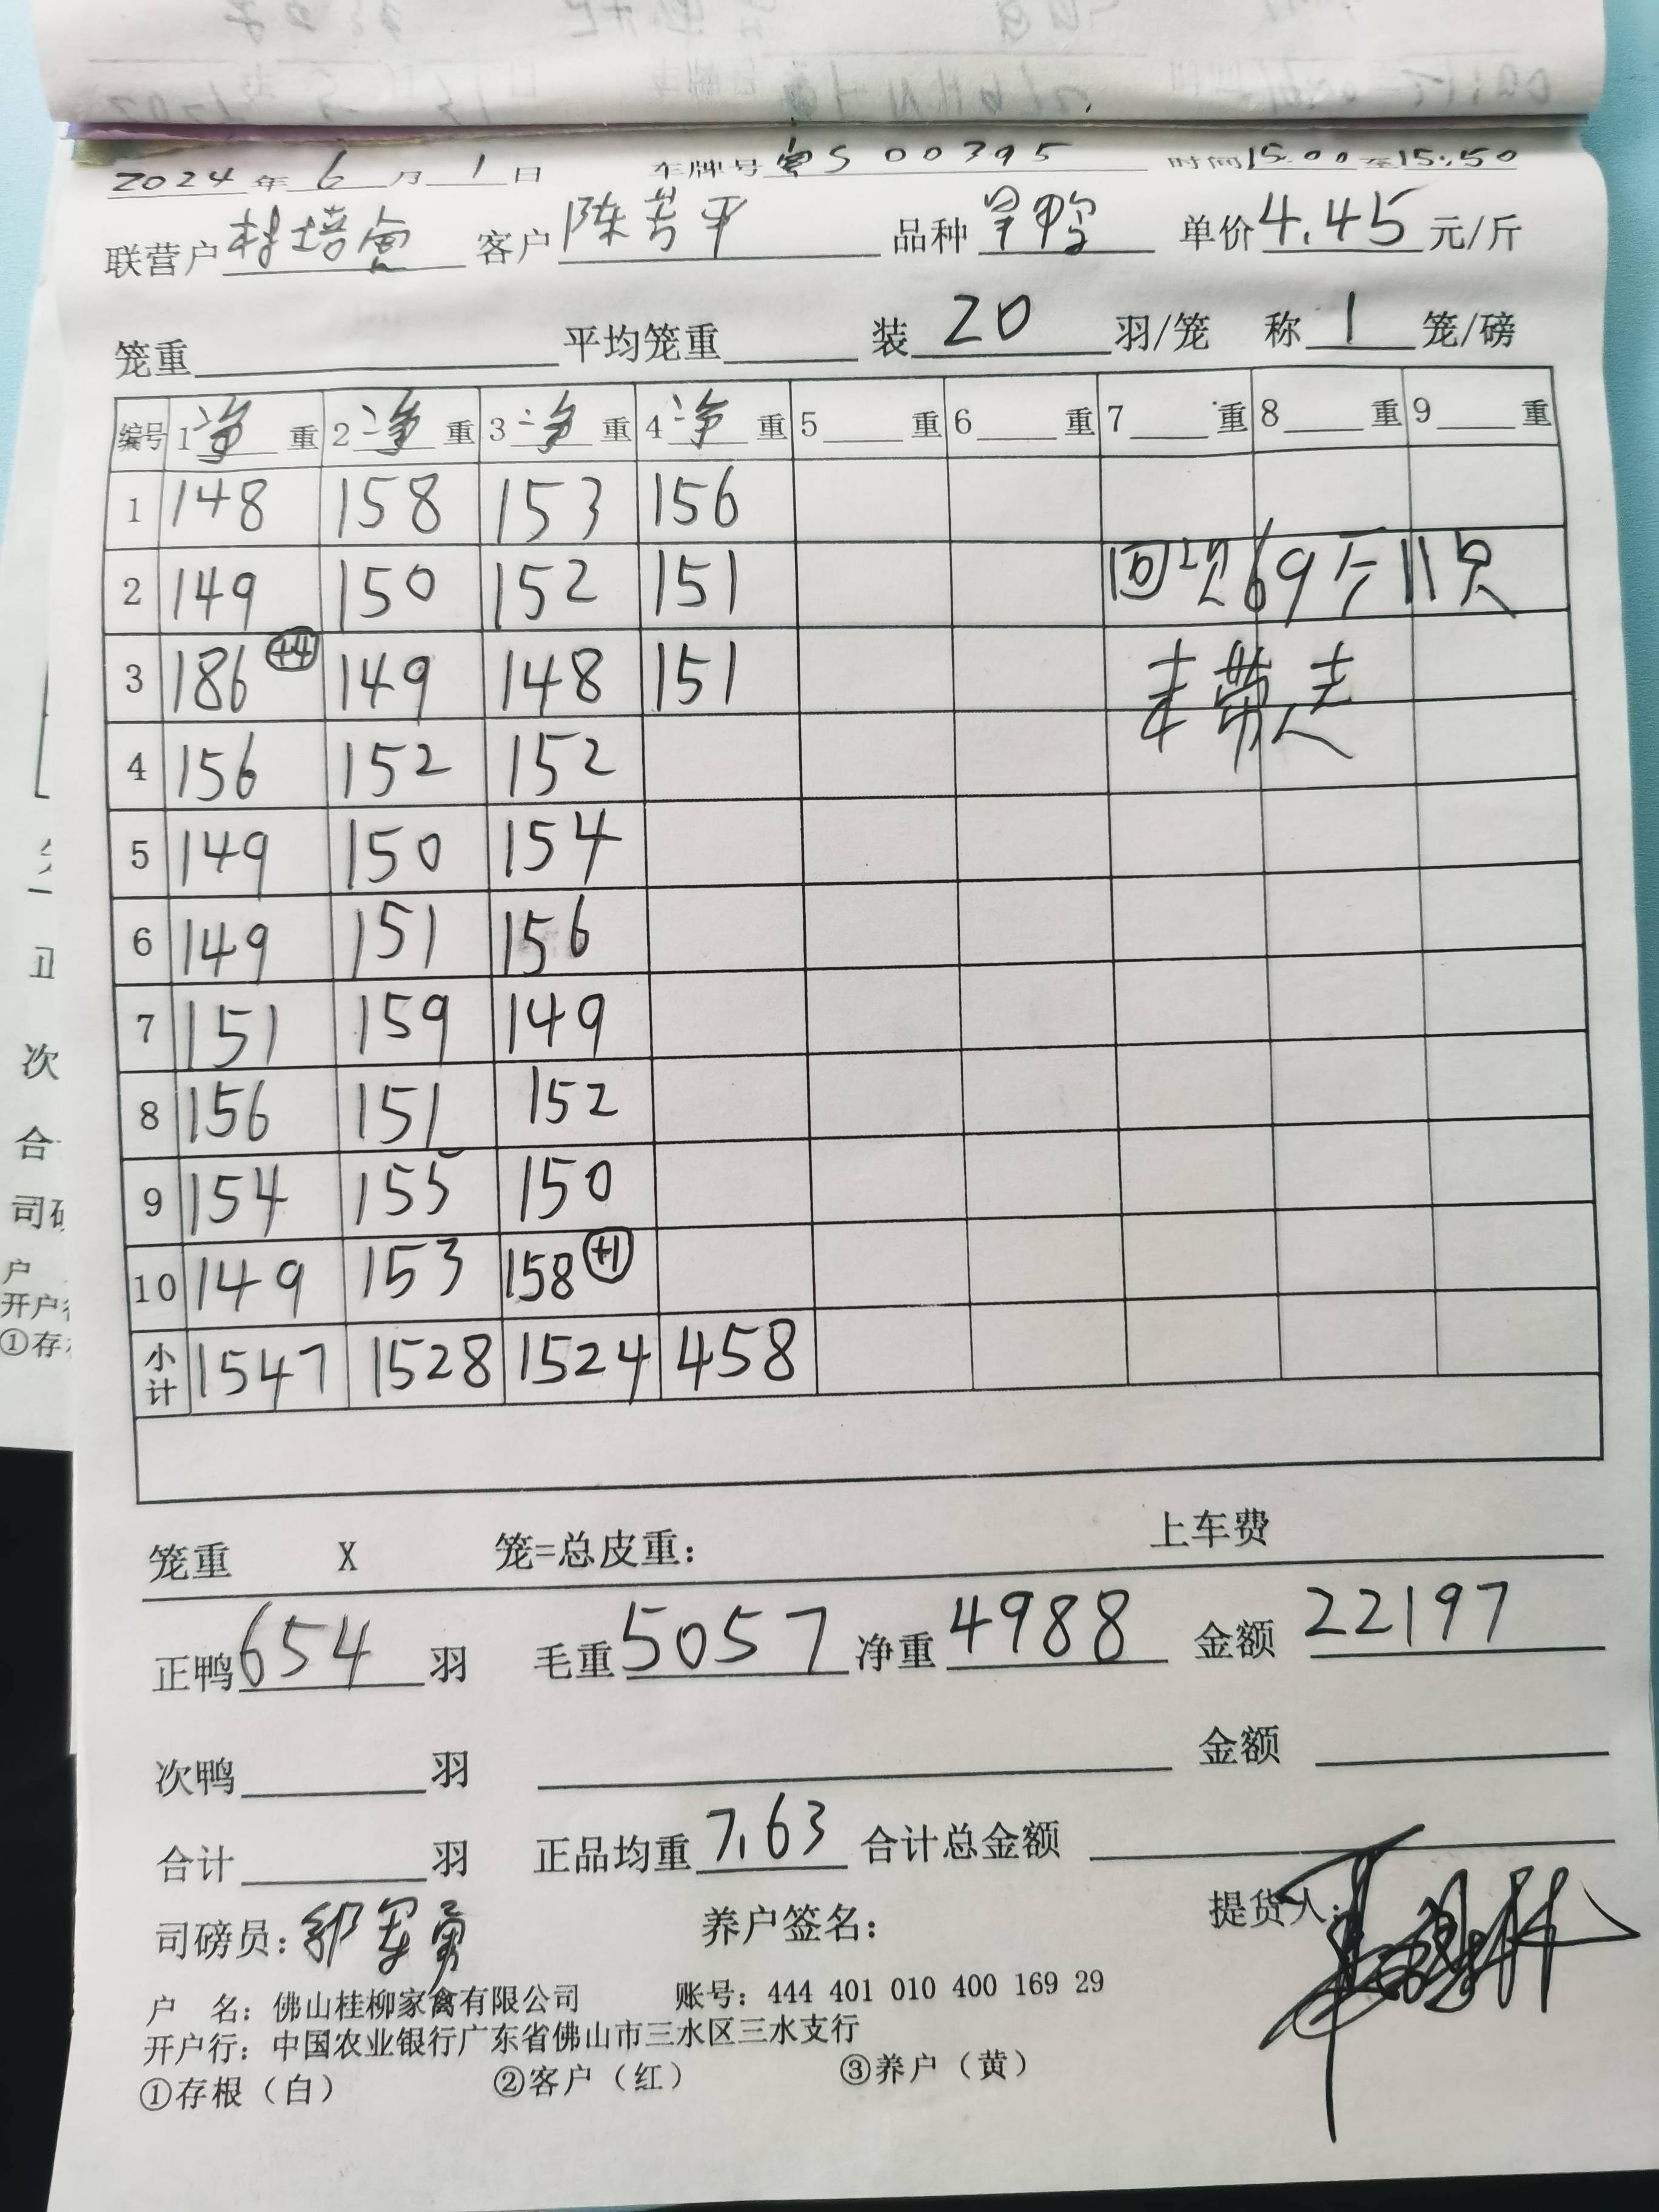 2024年6月1日 车牌号粤S 00395 时间15:00至15:50
联营户林培 客户陈芳平 品种旱鸭 单价4.45元/斤
笼重 平均笼重 装20羽/笼 称1笼/磅
编号 1净重 2净重 3净重 4净重 5重 6重 7重 8重 9重
1 148 158 153 156
2 149 150 152 151 回次69斤11只
3 186 +4 149 148 151 未带走
4 156 152 152
5 149 150 154
6 149 151 156
7 151 159 149
8 156 151 152
9 154 155 150
10 149 153 158 +1
小计 1547 1528 1524 458
笼重 X 笼=总皮重: 上车费
正鸭654羽 毛重5057 净重4988 金额22197
次鸭 羽 金额
合计 羽 正品均重7.63 合计总金额
司磅员:邹军勇 养户签名: 提货人:
户 名: 佛山桂柳家禽有限公司 账号: 444 401 010 400 169 29
开户行: 中国农业银行广东省佛山市三水区三水支行
①存根(白) ②客户(红) ③养户(黄)
正
次
合
司
户
开户
①存